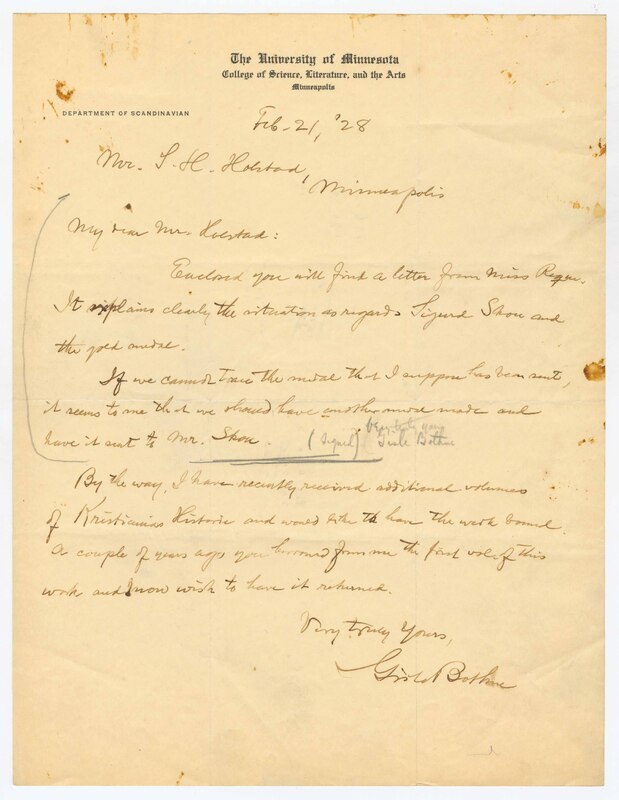 The University of Minnesota
College of Science, Literature, and the Arts
Minneapolis
DEPARTMENT OF SCANDINAVIAN
Feb. 21, '28
Mr. S. H. Holstad,
Minneapolis
My dear Mr. Holstad:
Enclosed you will find a letter from Miss
It explains clearly the situation as regards Sigurd Skou and
the gold medal.
If we cannot trace the medal that I suppose has been sent,
it seems to me that we should have another medal made and
very truly yours
have it sent to Mr. Skou. (Signed) Gisle Bothne
By the way, I have recently received additional volumes
of Kristianias Historie and would like to have the work bound.
A couple of years ago you borrowed from me the first vol. of this
work and I now wish to have it returned.
Very truly yours,
Gisle Bothne